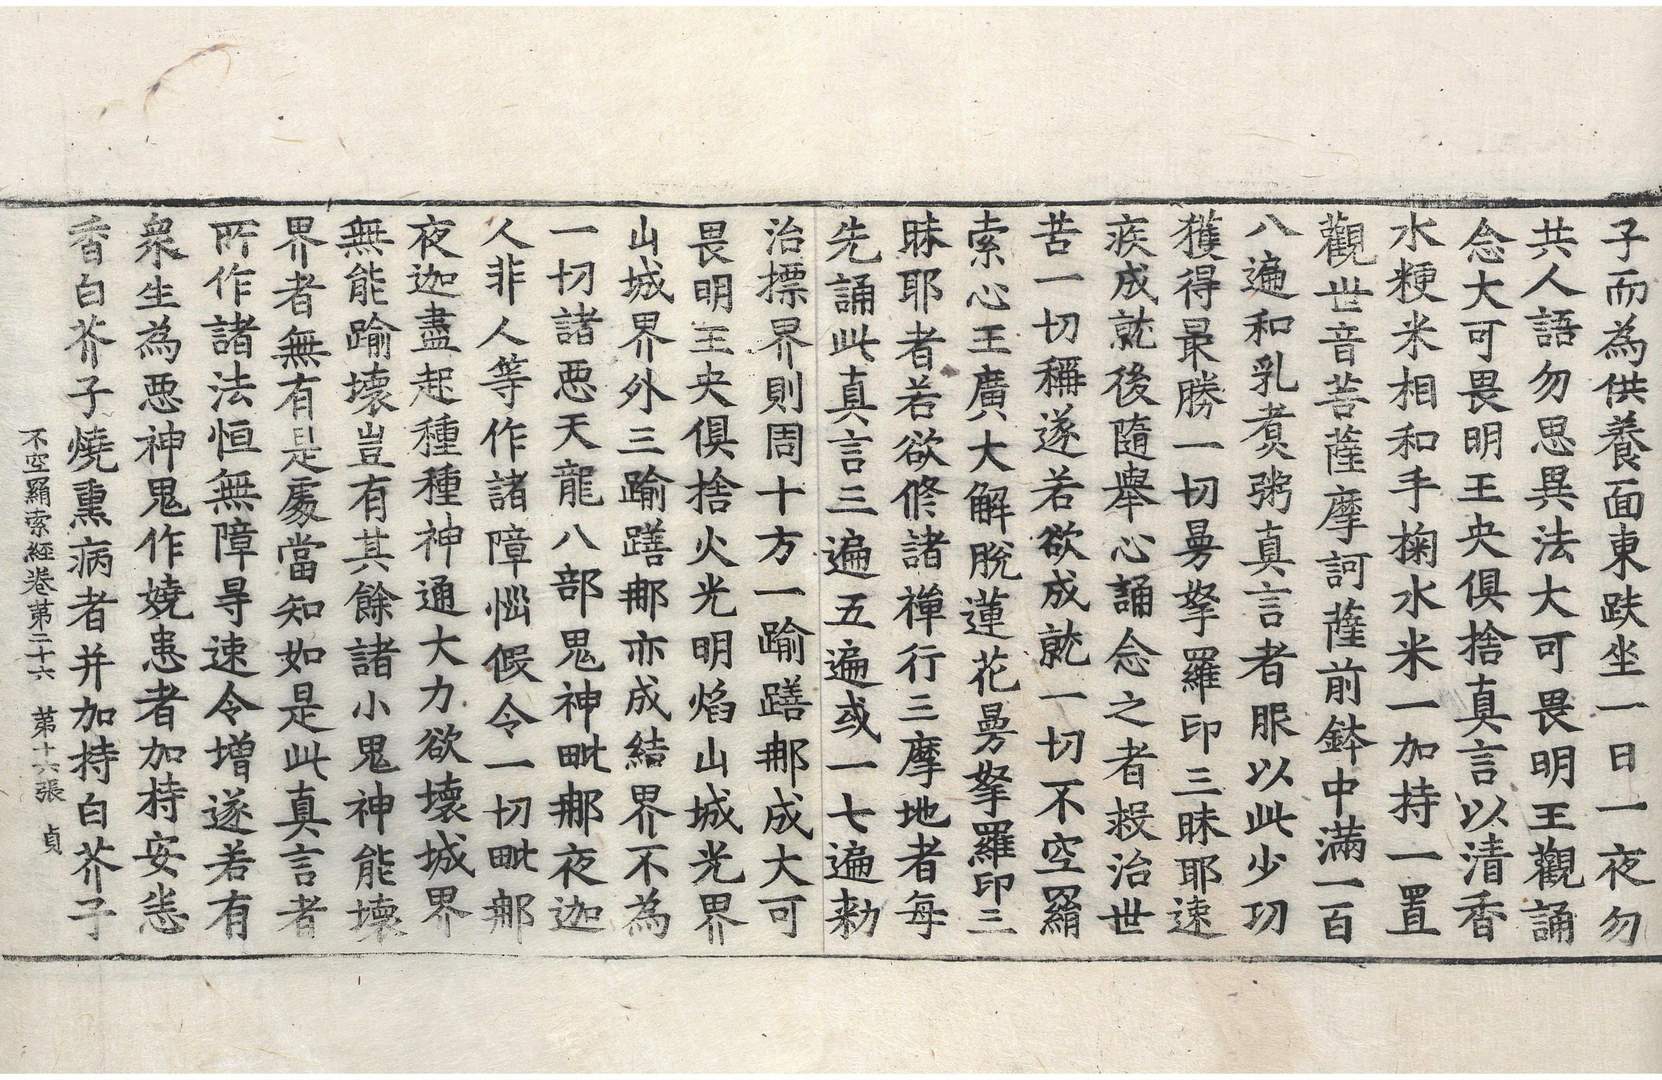 子而為供養面東趺坐一日一夜勿
共人語勿思異法大可畏明王觀誦
念大可畏明王央俱捨真言以清香
水粳米相和手掬水米一加持一置
觀世音菩薩摩訶薩前鉢中滿一百
八遍和乳煑粥真言者服以此少功
獲得最勝一切曼拏羅印三昧耶速
疾成就後隨舉心誦念之者救治世
苦一切稱遂若欲成就一切不空羂
索心王廣大解脫蓮花曼拏羅印三
昧耶者若欲修諸禪行三摩地者每
先誦此真言三遍五遍或一七遍勑
治摽界則周十方一踰饍那成大可
畏明王央俱捨火光明焰山城光界
山城界外三踰饍那亦成結界不為
一切諸惡天龍八部鬼神毗那夜迦
人非人等作諸障惱假令一切毗那
夜迦盡起種種神通大力欲壞城界
無能踰壞豈有其餘諸小鬼神能壞
界者無有是處當知如是此真言者
所作諸法恒無障㝵速令增遂若有
衆生為惡神鬼作嬈患者加持安悉
香白芥子燒熏病者并加持白芥子
不空羂索經卷第二十六 第十六張 貞